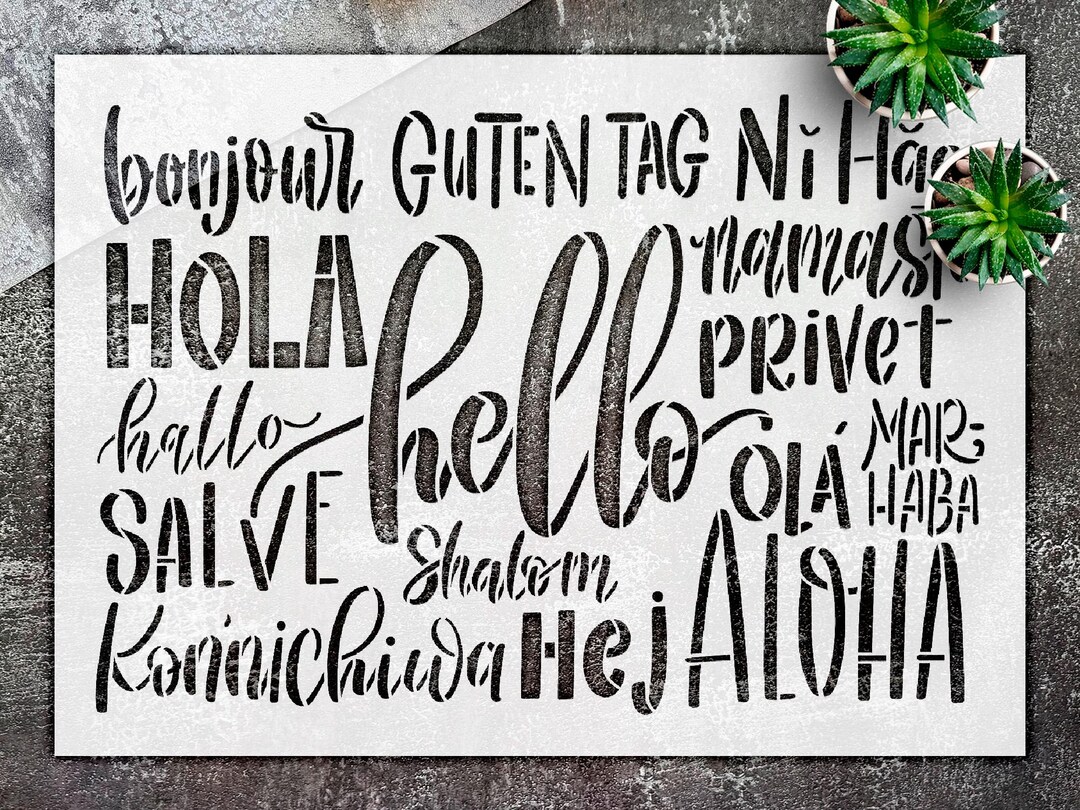 bonjour GUTEN TAG Nǐ Hǎo
HOLA
hello
namast
PRiVeT
hallo
OLÁ
MAR-
HABA
SALVE
Shalom
ALOHA
Konnichiwa Hej